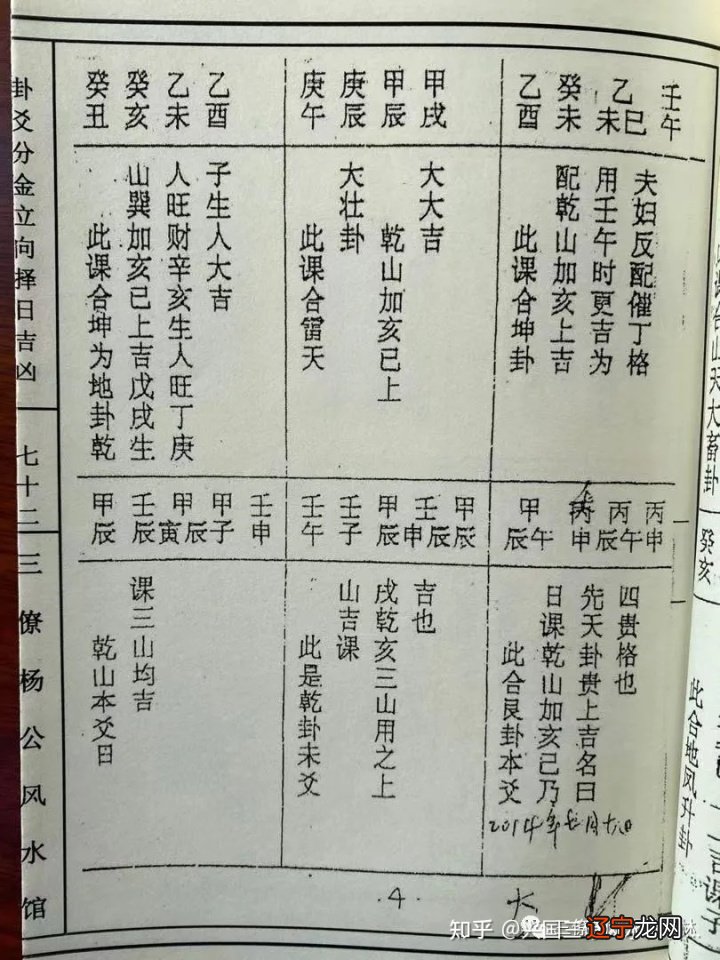 卦爻分金立向择日吉凶
七十二
三僚杨公风水馆
癸丑
癸亥
乙未
乙酉
此课合坤为地卦乾
山巽加亥巳上吉戊戌生
人旺财辛亥生人旺丁庚
子生人大吉
庚午
庚辰
甲辰
甲戌
此课合雷天
大壮卦
乾山加亥巳上
大大吉
乙酉
癸未
乙未 巳
壬午
此课合坤卦
配乾山加亥上吉
用壬午时更吉为
夫妇反配催丁格
甲辰
壬辰
甲寅 辰
甲子
壬申
乾山本爻日
课三山均吉
壬午
壬子
甲辰
壬申 辰
甲辰
此是乾卦未爻
山吉课
戌乾亥三山用之上
吉也
甲辰 午
丙申
丙辰 午
丙申
此合艮卦本爻
日课乾山加亥己乃
先天卦贵上吉名曰
四贵格也
2014年
·4·
山天大畜卦
癸亥
此合地风升卦
吉课子
知乎 @兴国三
辽宁龙网